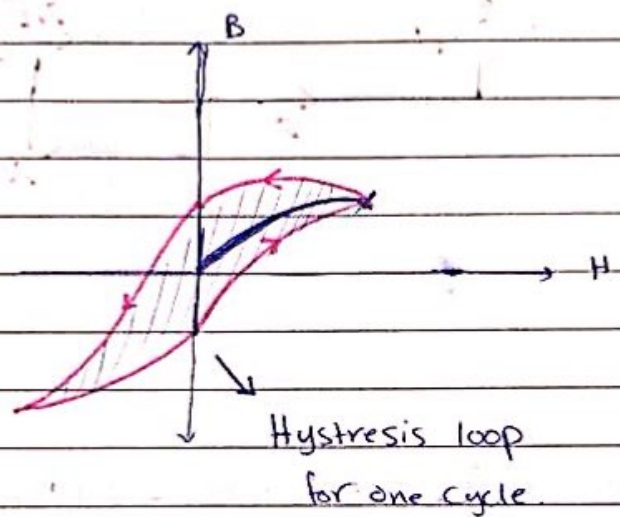 B
H
Hystresis loop
for one cycle.